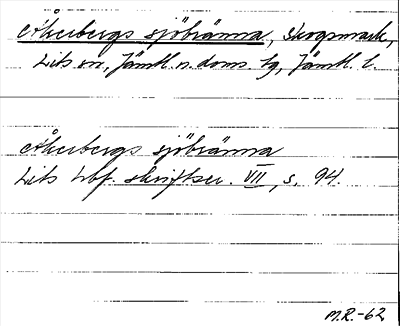 Åkerbergs sjöränna, skogsmark,
Lits sn, Jämtl. n. doms. tg, Jämtl. l.
Åkerbergs sjöränna
Lits hbf. skriftser. VII, s. 94.
M.R.-62